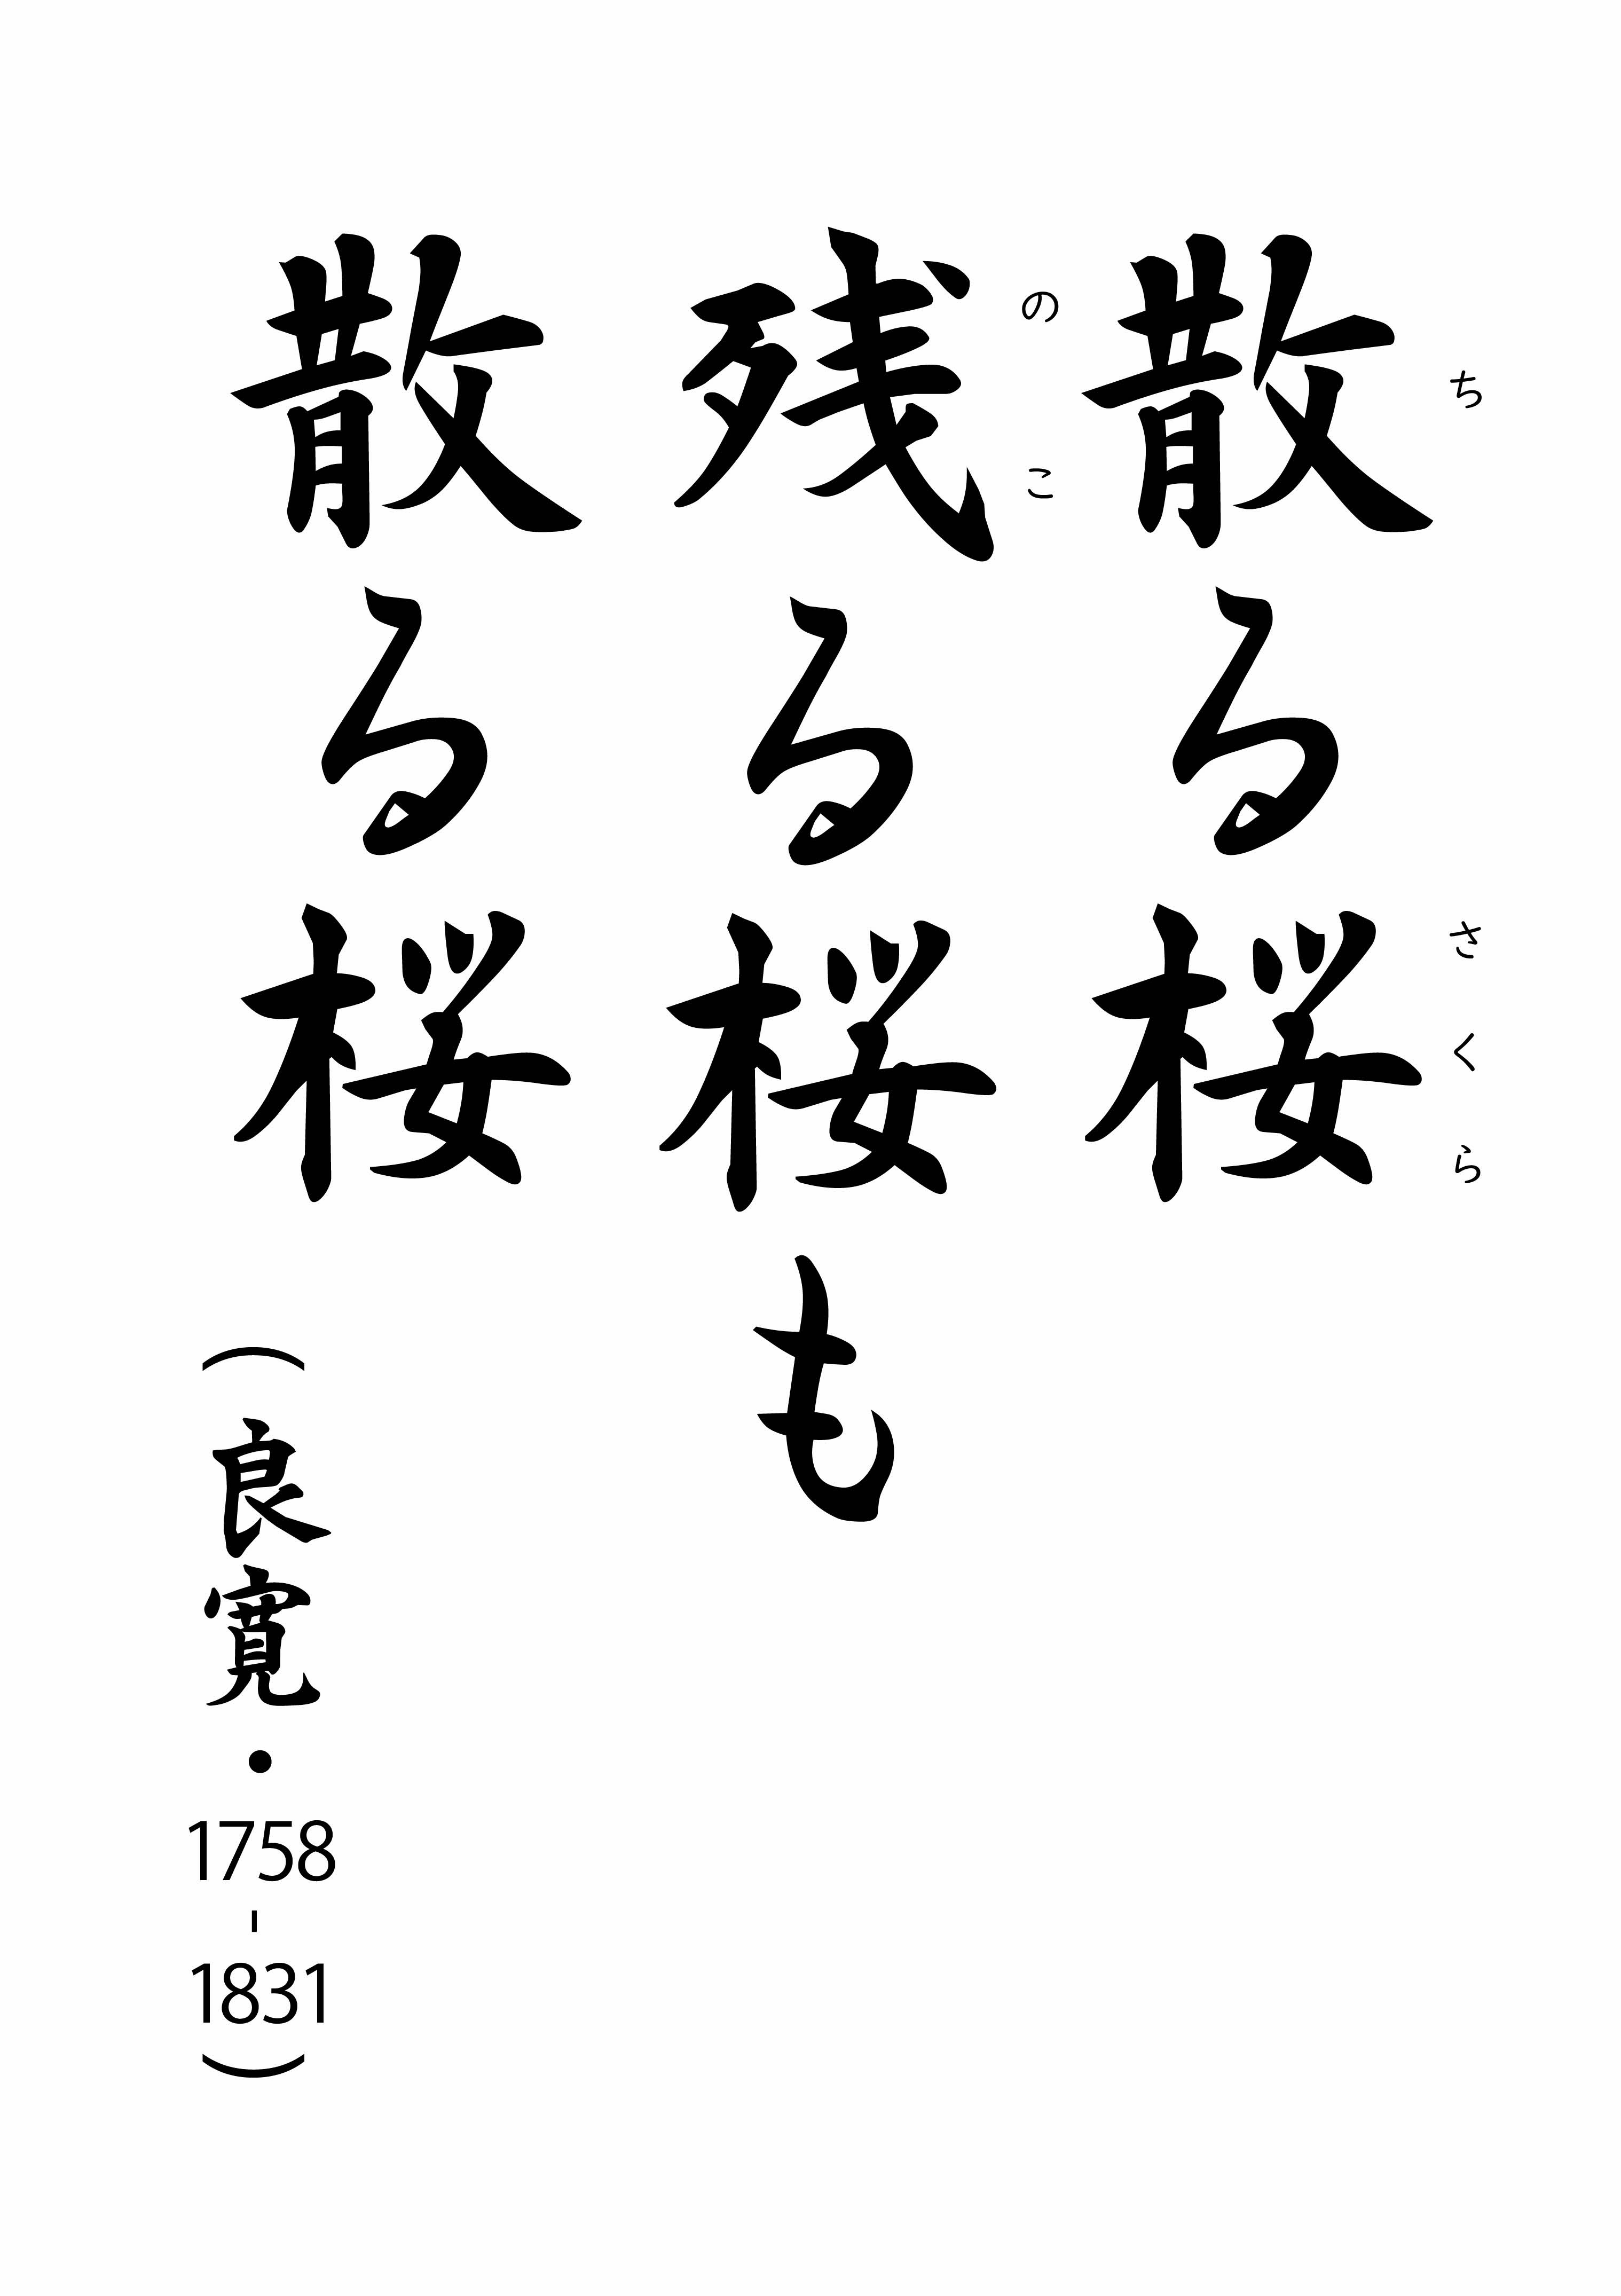 散る桜
ちさくら
残る桜も
のこ
散る桜
（良寛・1758-1831）